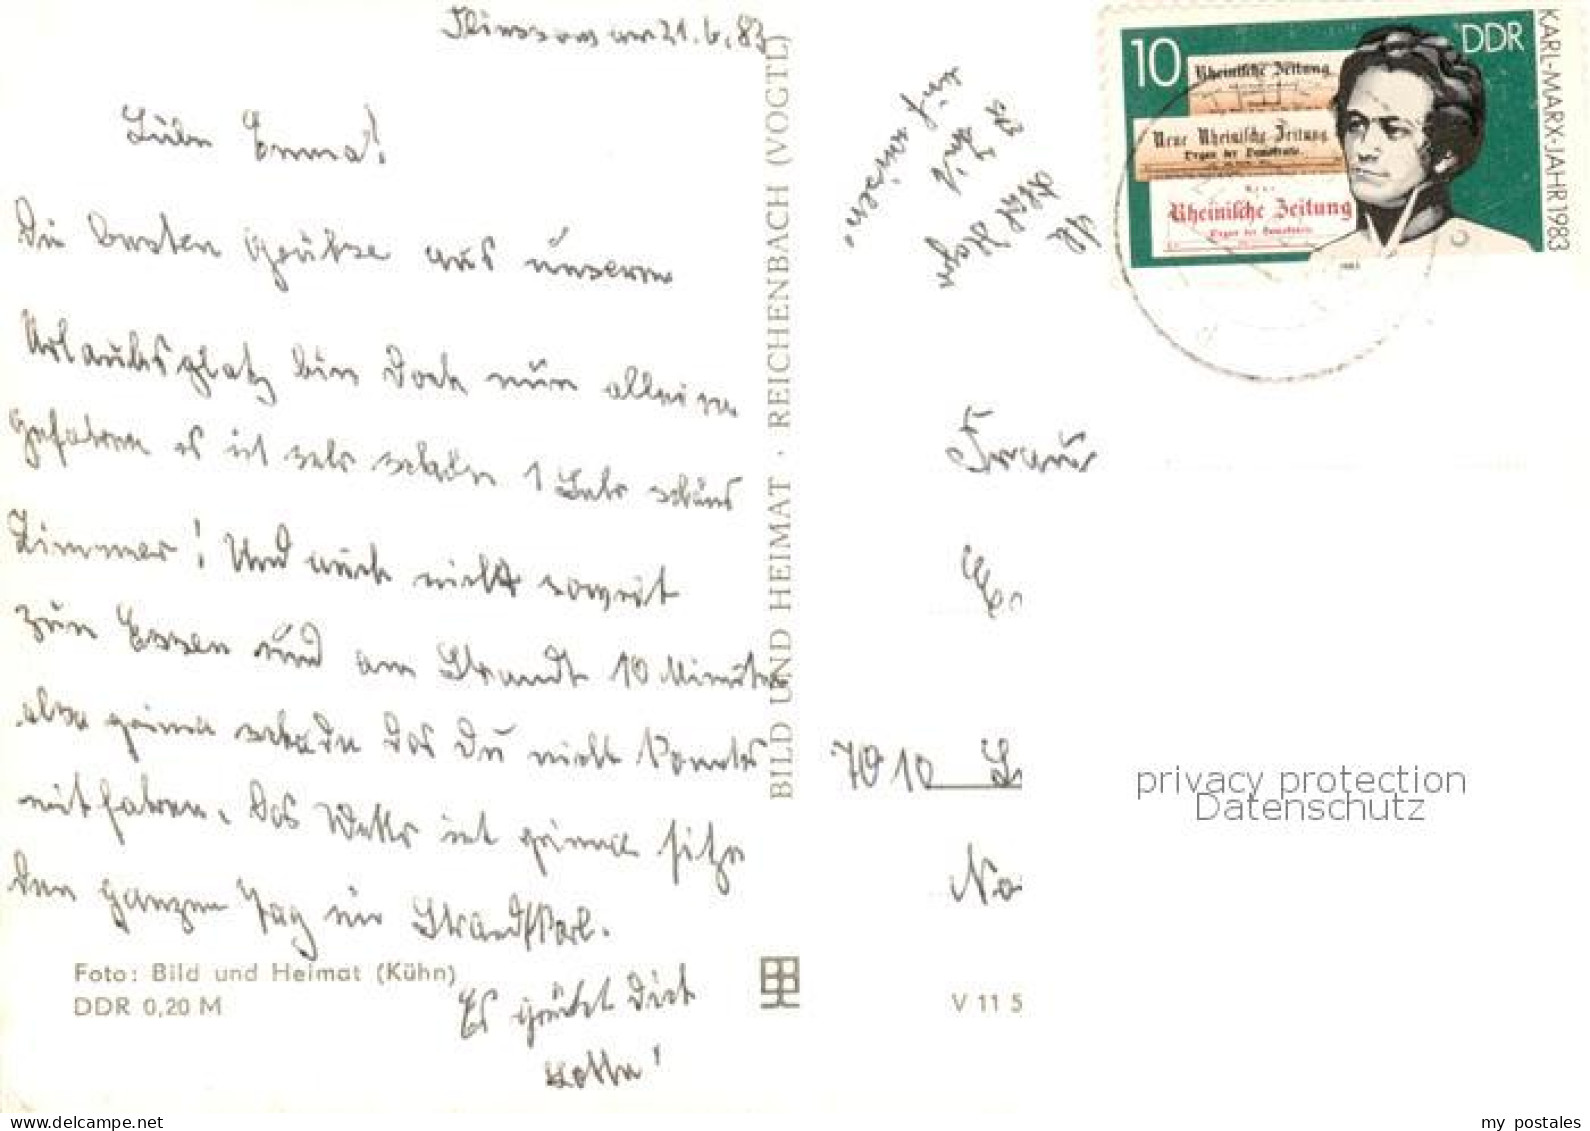 am 21.6.83
Liebe Emma!
Die besten Grüße aus unserm
Urlaubsplatz bin doch nun allein
gefahren es ist sehr schön 1 sehr schönes
Zimmer! Und auch nicht soweit
zum Essen und am Strandt 10 Minuten
also prima schade das du nicht konntes
mitfahren. Das Wetter ist prima sitze
den ganzen Tag im Strandkorb.
Es grüßt Dich
Lotte!
Foto: Bild und Heimat (Kühn)
DDR 0,20 M
BILD UND HEIMAT · REICHENBACH (VOGTL)
V 11 5
10
DDR
Rheinische Zeitung
Neue Rheinische Zeitung
Organ der Demokratie
Neue
Rheinische Zeitung
Organ der Demokratie
1983
KARL-MARX-JAHR 1983
Frau
7010
privacy protection
Datenschutz
my postales